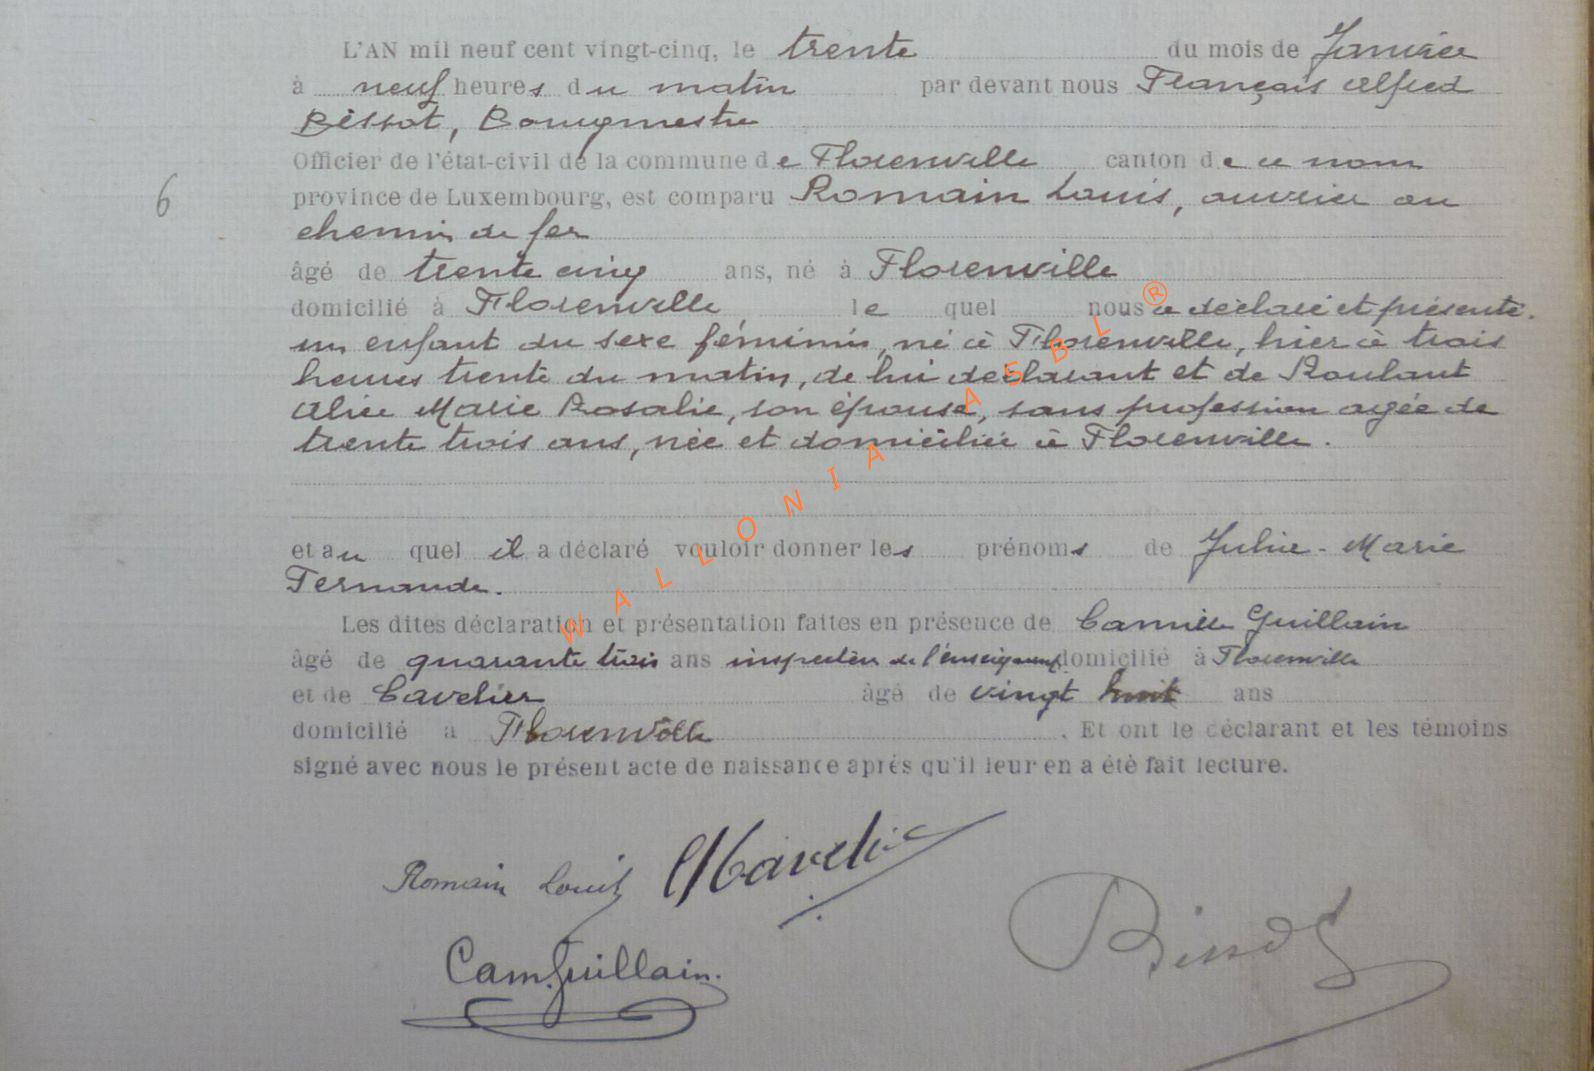 L'AN mil neuf cent vingt-cinq, le trente du mois de Janvier
à neuf heures du matin par devant nous François Alfred
Bissot, Bourgmestre
Officier de l'état-civil de la commune de Florenville canton de ce nom
6
province de Luxembourg, est comparu Romain Louis, ouvrier au
chemin de fer
âgé de trente cinq ans, né à Florenville
domicilié à Florenville, le quel nous a déclaré et présenté
un enfant du sexe féminin, né à Florenville, hier à trois
heures trente du matin, de lui déclarant et de Roulant
Alice Marie Rosalie, son épouse, sans profession agée de
trente trois ans, née et domiciliée à Florenville.
et au quel il a déclaré vouloir donner les prénoms de Julie-Marie
Fernande.
Les dites déclaration et présentation faites en présence de Camille Guillain
âgé de quarante trois ans inspecteur de l'enseignemt domicilié à Florenville
et de Cavelier âgé de vingt huit ans
domicilié à Florenville. Et ont le déclarant et les témoins
signé avec nous le présent acte de naissance après qu'il leur en a été fait lecture.
WALLONIA ASBL ®
Romain Louis
Cam. Guillain.
Bissot